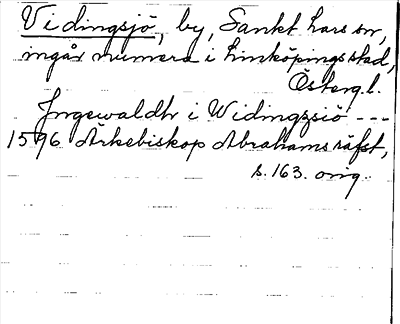 Vidingsjö, by, Sankt Lars sn,
ingår numera i Linköpings stad,
Österg.l.
Jngewaldh i Widingzsiö ---
1596 Ärkebiskop Abrahams räfst,
s. 163. orig.